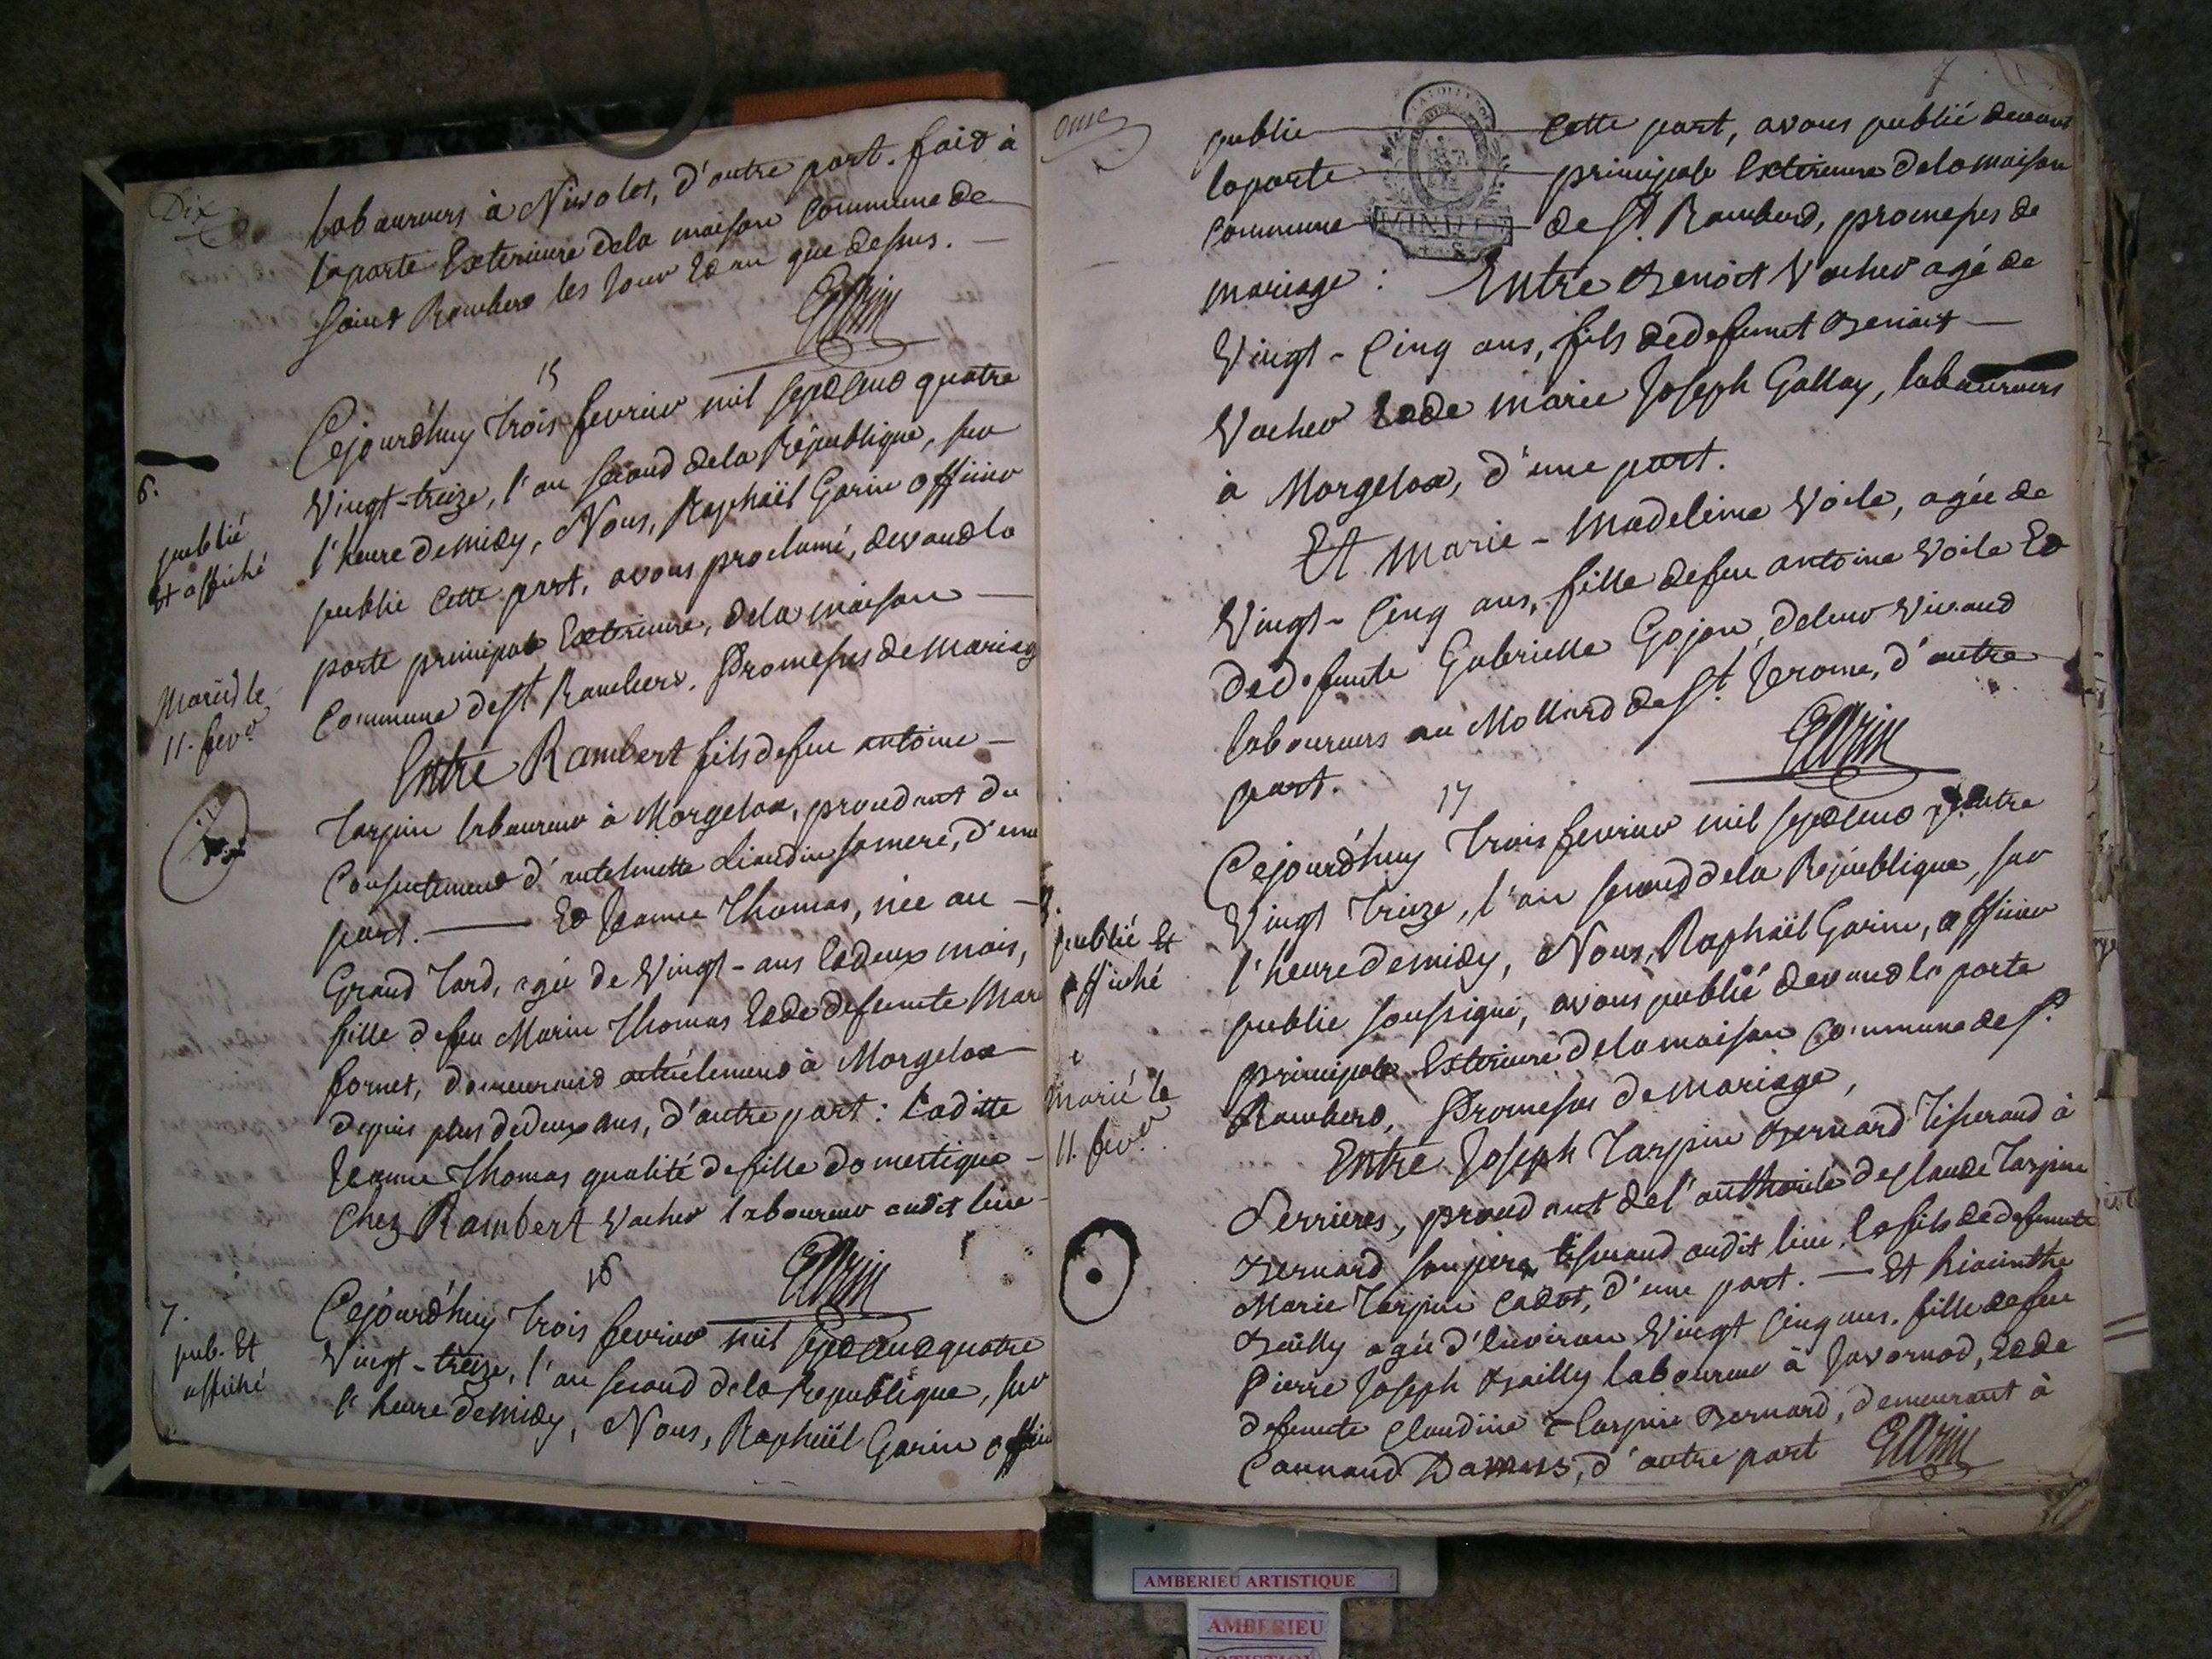 Dix
laboureurs à Nivolet, d'autre part. fait à
la porte Exterieure dela maison Commune de
Saint Rambert les Jour Et an que dessus.
Garin
15
6.
publié
Et affiché
Marié le
11. fevr
Cejourd'huy trois fevrier mil sept Cent quatre
Vingt-treize, l'an second dela République, sur
l'heure de midy, Nous, Raphaël Garin officier
public Cette part, avons proclamé, devant la
porte principale Exterieure, dela maison
Commune de St Rambert, Promesses de Mariage
Entre Rambert fils de feu antoine
Tarpin laboureur à Morgelax, proudant du
Consentement d'antelmette Liaudin sa mere, d'une
part. Et Jeanne Thomas, née au
Grand Tard, agée de Vingt-ans Et deux mois,
fille de feu Marin Thomas Et de defunte Mari
fornet, demeurant actuelement à Morgelax
depuis plus de deux ans, d'autre part: Laditte
Jeanne Thomas qualité de fille domestique
Chez Rambert Vacher laboureur audit lieu
Garin
16
7.
pub. Et
affiché
Cejourd'huy trois fevrier mil sept Cent quatre
Vingt-treize, l'an second dela Republique, sur
l'heure de midy, Nous, Raphaël Garin officier
onze
7
public Cette part, avons publié devant
la porte principale Exterieure dela maison
Commune de St. Rambert, promesses de
mariage: Entre Benoit Vacher agé de
Vingt-Cinq ans, fils de defunt Benoit
Vacher Et de Marie Joseph Gallay, laboureurs
à Morgelax, d'une part.
Et Marie-Madeleine Voile, agée de
Vingt-Cinq ans, fille de feu antoine Voile Et
de defunte Gabrielle Gojon, deleur Vivant
laboureurs au Mollard de St. Jerome, d'autre
part.
Garin
17
8.
publié Et
affiché
Marié le
11. fevr.
Cejourd'huy trois fevrier mil sept Cent quatre
Vingt treize, l'an second dela République, sur
l'heure de midy, Nous, Raphaël Garin, officier
public soussigné, avons publié devant la porte
principale Exterieure dela maison Commune de St.
Rambert, Promesses de mariage,
Entre Joseph Tarpin Bernard tisserand à
Serrieres, proudant del'authorité de Claude Tarpin
Bernard son pere, tisserand audit lieu, Et fils de defunte
Marie Tarpin Cadet, d'une part. Et hiacinthe
Bailly agée d'Environ Vingt Cinq ans, fille de feu
Pierre Joseph Bailly laboureur à Javornod, Et de
defunte Claudine Tarpin Bernard, demeurant à
d'autre part
Garin
MINUTE
AMBERIEU ARTISTIQUE
AMBERIEU
ARTISTIQUE